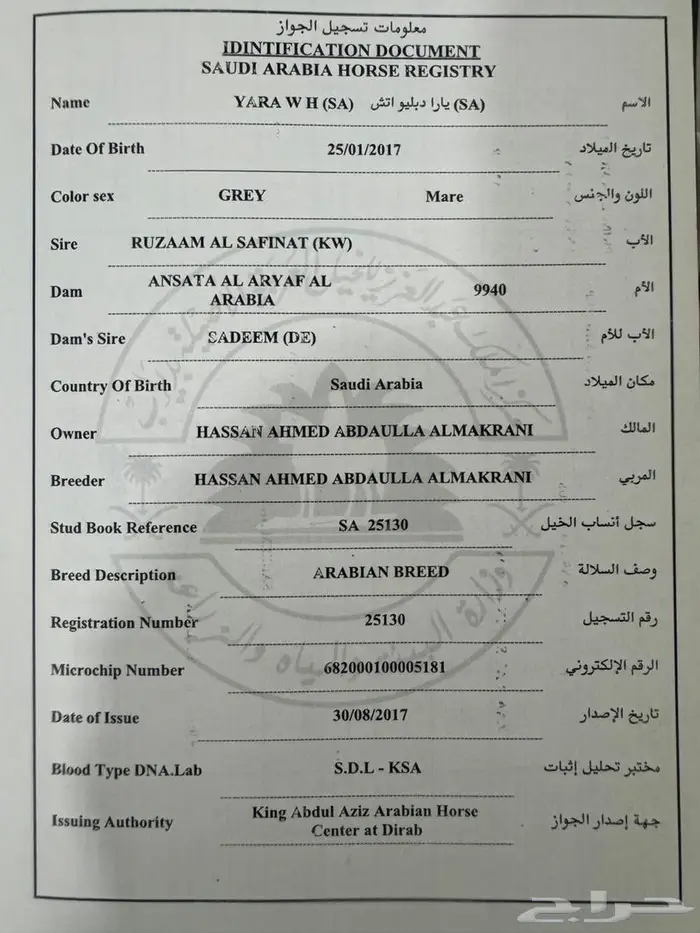 معلومات تسجيل الجواز
IDINTIFICATION DOCUMENT
SAUDI ARABIA HORSE REGISTRY
Name YARA W H (SA) يارا دبليو اتش (SA) الاسم
Date Of Birth 25/01/2017 تاريخ الميلاد
Color sex GREY Mare اللون والجنس
Sire RUZAAM AL SAFINAT (KW) الأب
Dam ANSATA AL ARYAF AL ARABIA 9940 الأم
Dam's Sire SADEEM (DE) الأب للأم
Country Of Birth Saudi Arabia مكان الميلاد
Owner HASSAN AHMED ABDAULLA ALMAKRANI المالك
Breeder HASSAN AHMED ABDAULLA ALMAKRANI المربي
Stud Book Reference SA 25130 سجل أنساب الخيل
Breed Description ARABIAN BREED وصف السلالة
Registration Number 25130 رقم التسجيل
Microchip Number 682000100005181 الرقم الإلكتروني
Date of Issue 30/08/2017 تاريخ الإصدار
Blood Type DNA.Lab S.D.L - KSA مختبر تحليل إثبات
Issuing Authority King Abdul Aziz Arabian Horse Center at Dirab جهة إصدار الجواز
وزارة البيئة والمياه والزراعة
حراج